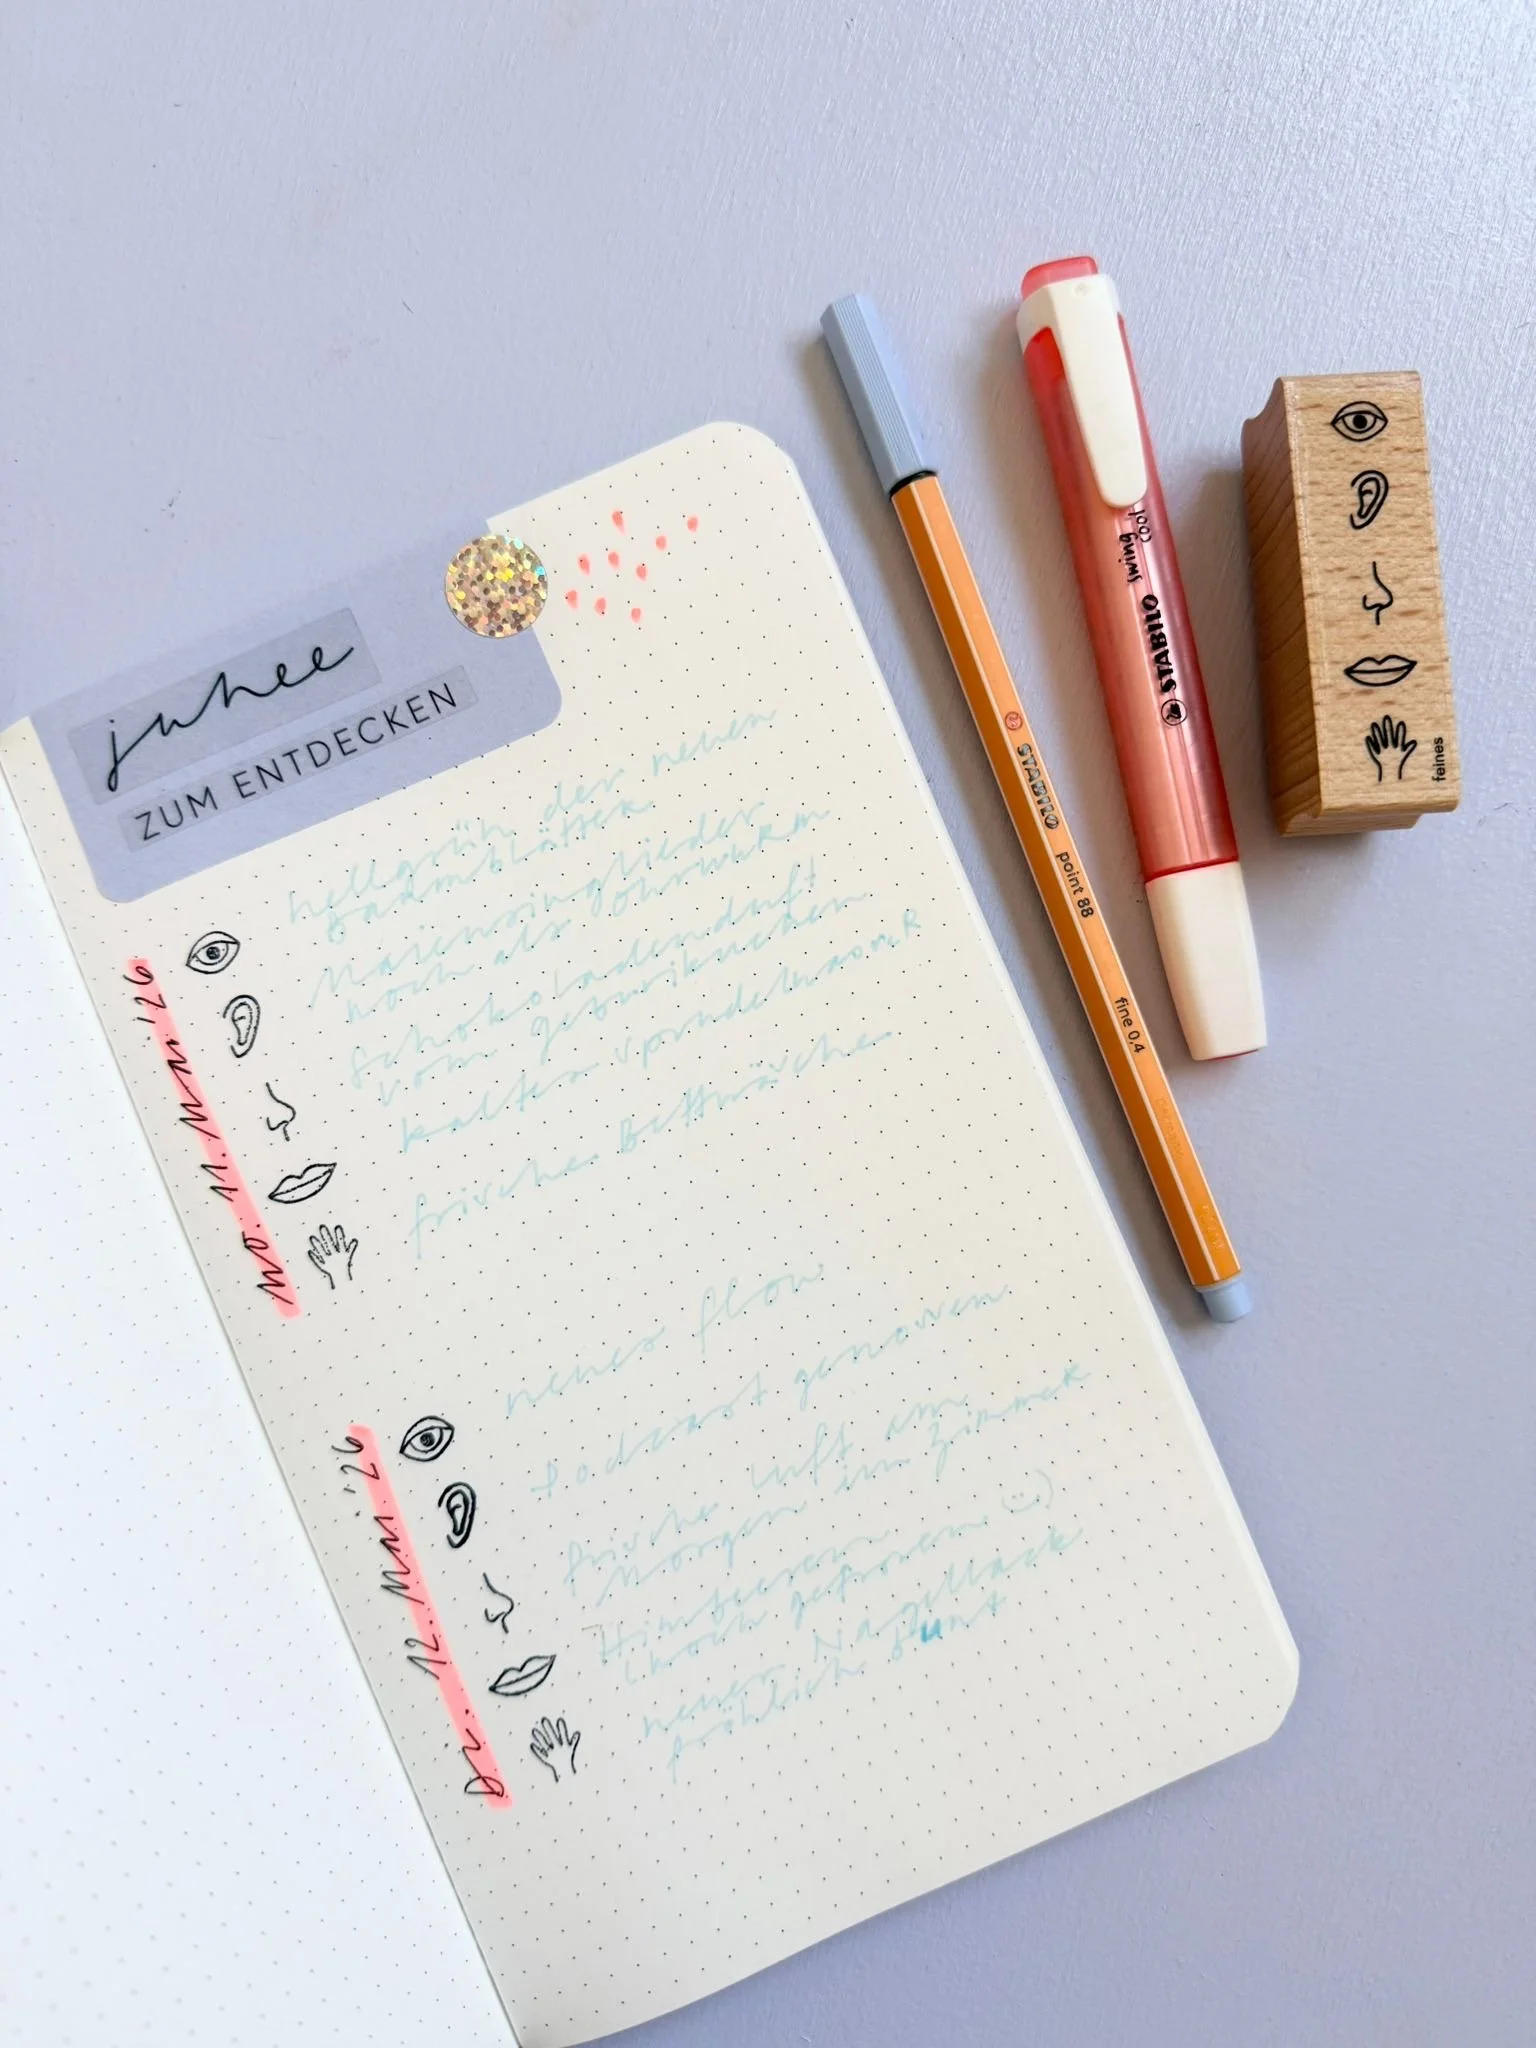 juhee
ZUM ENTDECKEN
Mo. 11. Mai '26
hellgrün der neuen
Baumblätter
Maiensinglieder
noch als Ohrwurm
Schokoladenduft
vom Geburikuchen
kaltes Sprudelwasser
frische Bettwäsche
Di. 12. Mai '26
neues flow
Podcast genossen
frische Luft am
Morgen im Zimmer
Himbeeren
(noch gefroren :))
neuer Nagellack
fröhlich bunt
STABILO point 88 fine 0,4
STABILO swing cool
feines